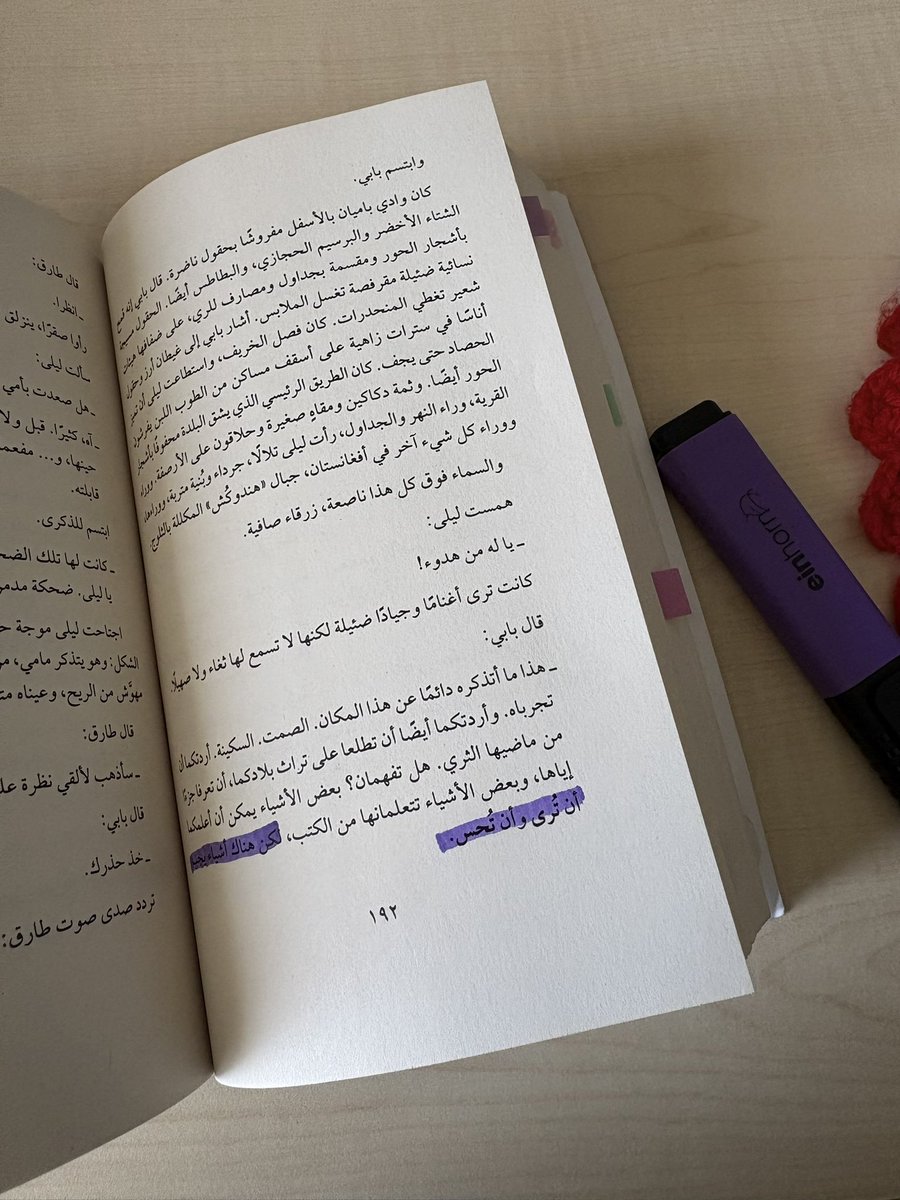 وابتسم بابي.
كان وادي باميان بالأسفل مفروشًا بحقول ناضرة. قال بابي إنه قمح
الشتاء الأخضر والبرسيم الحجازي، والبطاطس أيضًا. الحقول مسيجة
بأشجار الحور ومقسمة بجداول ومصارف للري، على ضفافها هيئات
نسائية ضئيلة مقرفصة تغسل الملابس. أشار بابي إلى غيطان أرز وحقول
شعير تغطي المنحدرات. كان فصل الخريف، واستطاعت ليلى أن تميز
أناسًا في سترات زاهية على أسقف مساكن من الطوب اللبن يفرشون
الحصاد حتى يجف. كان الطريق الرئيسي الذي يشق البلدة محفوفًا بأشجار
الحور أيضًا. وثمة دكاكين ومقاهٍ صغيرة وحلاقون على الأرصفة. ووراء
القرية، وراء النهر والجداول، رأت ليلى تلالًا، جرداء وبُنية متربة، ووراءها،
ووراء كل شيء آخر في أفغانستان، جبال «هندوكُش» المكللة بالثلوج.
والسماء فوق كل هذا ناصعة، زرقاء صافية.
همست ليلى:
ـ يا له من هدوء!
كانت ترى أغنامًا وجيادًا ضئيلة لكنها لا تسمع لها ثغاء ولا صهيلًا.
قال بابي:
ـ هذا ما أتذكره دائمًا عن هذا المكان. الصمت. السكينة. أردتكما أن
تجرباه. وأردتكما أيضًا أن تطلعا على تراث بلادكما، أن تعرفا جزءًا
من ماضيها الثري. هل تفهمان؟ بعض الأشياء يمكن أن أعلمكما
إياها، وبعض الأشياء تتعلمانها من الكتب، لكن هناك أشياء يجب
أن تُرى وأن تُحس.
١٩٢
قال طارق:
ـ انظرا.
رأوا صقرًا، ينزلق
سألت ليلى:
ـ هل صعدت بأمي
ـ آه، كثيرًا. قبل ولا
حينها، و... مفعمة
قابلته.
ابتسم للذكرى.
ـ كانت لها تلك الضح
يا ليلى. ضحكة مدمر
اجتاحت ليلى موجة ح
الشكل: وهو يتذكر مامي، مر
مهوَّش من الريح، وعيناه مت
قال طارق:
ـ سأذهب لألقي نظرة عل
قال بابي:
ـ خذ حذرك.
تردد صدى صوت طارق:
einhorn